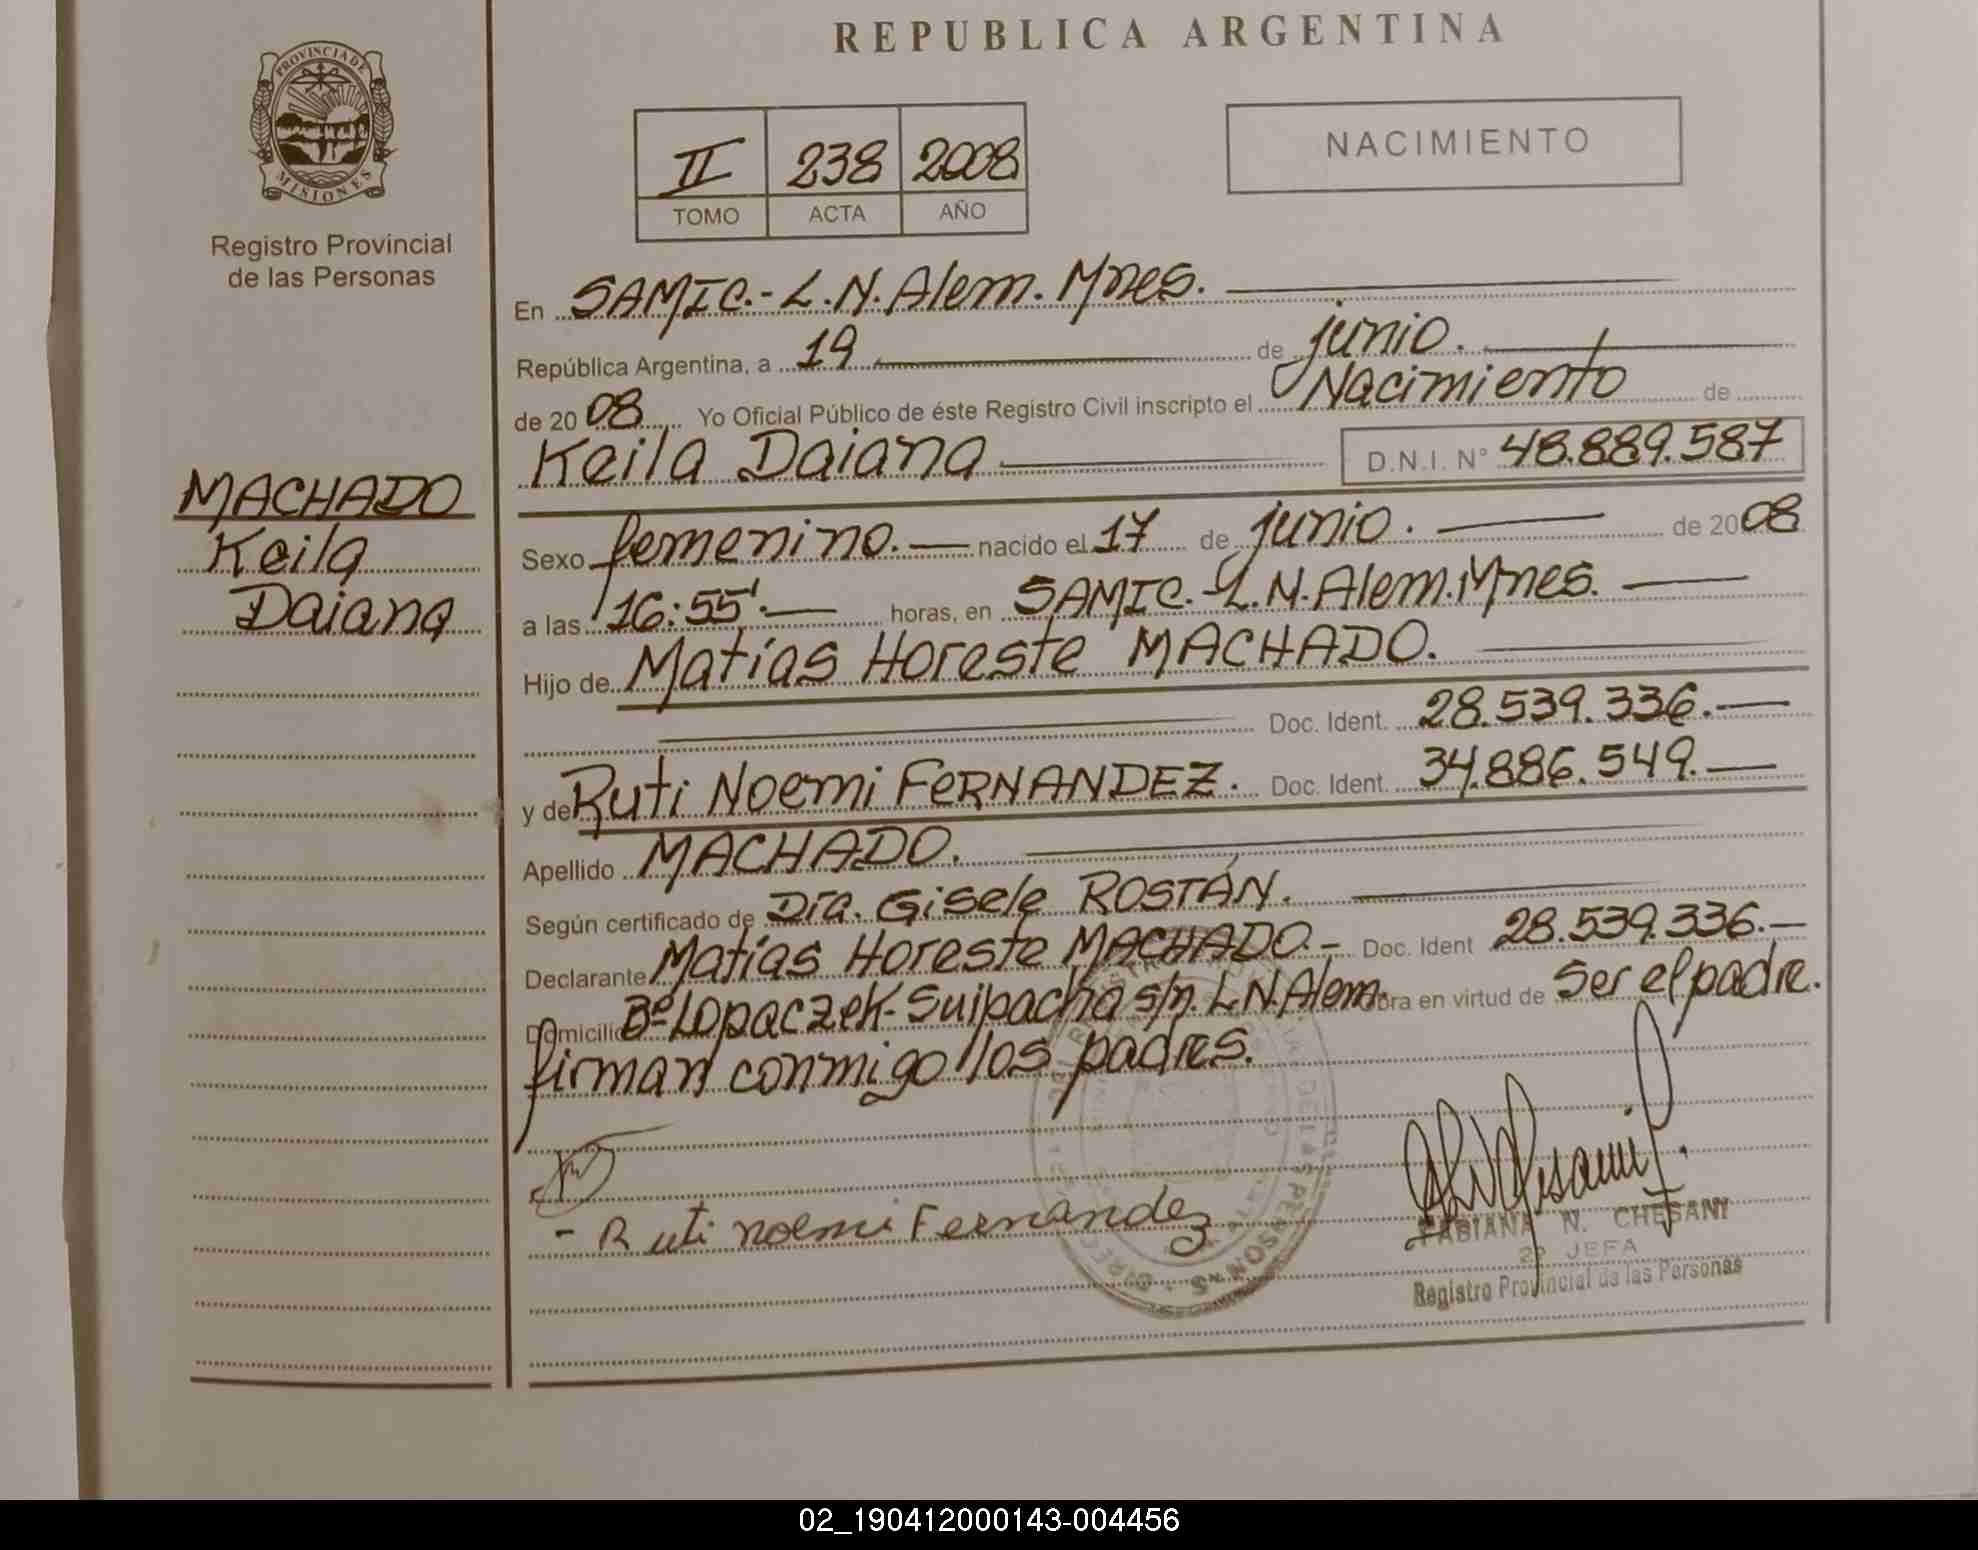 REPUBLICA ARGENTINA
PROVINCIA DE
MISIONES
Registro Provincial
de las Personas
II 238 2008
TOMO ACTA AÑO
NACIMIENTO
MACHADO
Keila
Daiana
En SAMIC.-L.N.Alem.Mnes.
República Argentina, a 19 de junio.
de 2008 Yo Oficial Público de éste Registro Civil inscripto el Nacimiento de
Keila Daiana D.N.I. N° 48.889.587
Sexo femenino. nacido el 17 de junio. de 2008
a las 16:55'. horas, en SAMIC.-L.N.Alem.Mnes.
Hijo de Matías Horeste MACHADO.
Doc. Ident. 28.539.336.
y de Ruti Noemi FERNANDEZ. Doc. Ident. 34.886.549.
Apellido MACHADO.
Según certificado de Dra. Gisele ROSTÁN.
Declarante Matías Horeste MACHADO.- Doc. Ident 28.539.336.-
Domicilio B° Lopaczek-Suipacha s/n. L.N.Alem. Obra en virtud de Ser el padre.
firman conmigo los padres.
- Ruti noemi Fernandez
FABIANA N. CHESANI
2º JEFA
Registro Provincial de las Personas
02_190412000143-004456